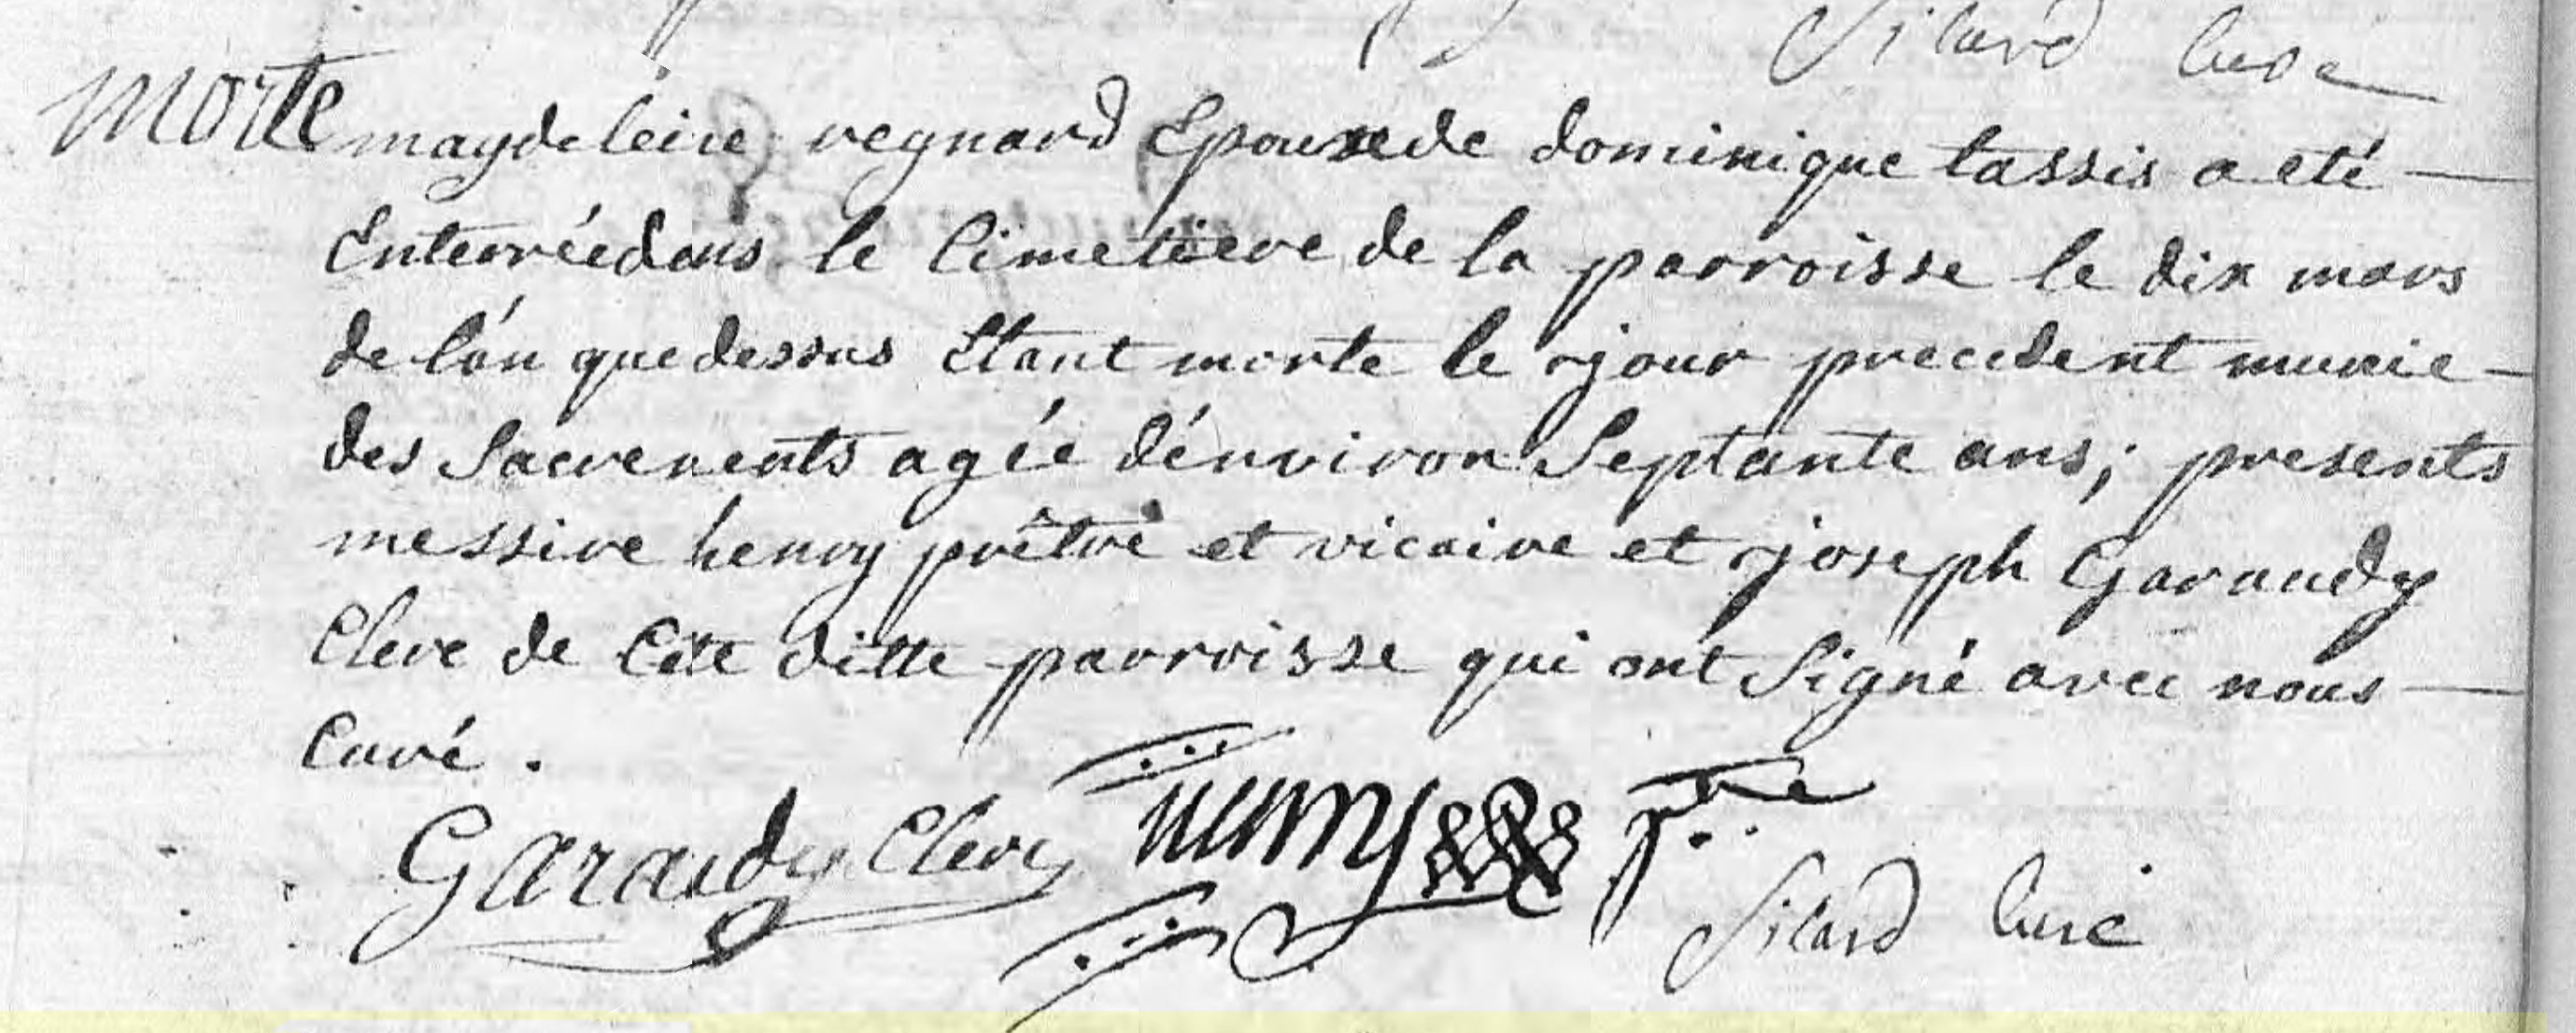 Silard Curé
morte magdeleine regnard Epouse de dominique tassis a eté
Enterréedans le Cimetiere de la parroisse le dix mars
de l'án que dessus Etant morte le jour precedent munie
des Sacrements agée d'énviron Septante ans; presents
messire henry prêtre et vicaire et joseph Garaudy
Clerc de Cette ditte parroisse qui ont Signé avec nous
Curé.
Garaudy Clerc henry ptre
Silard Curé